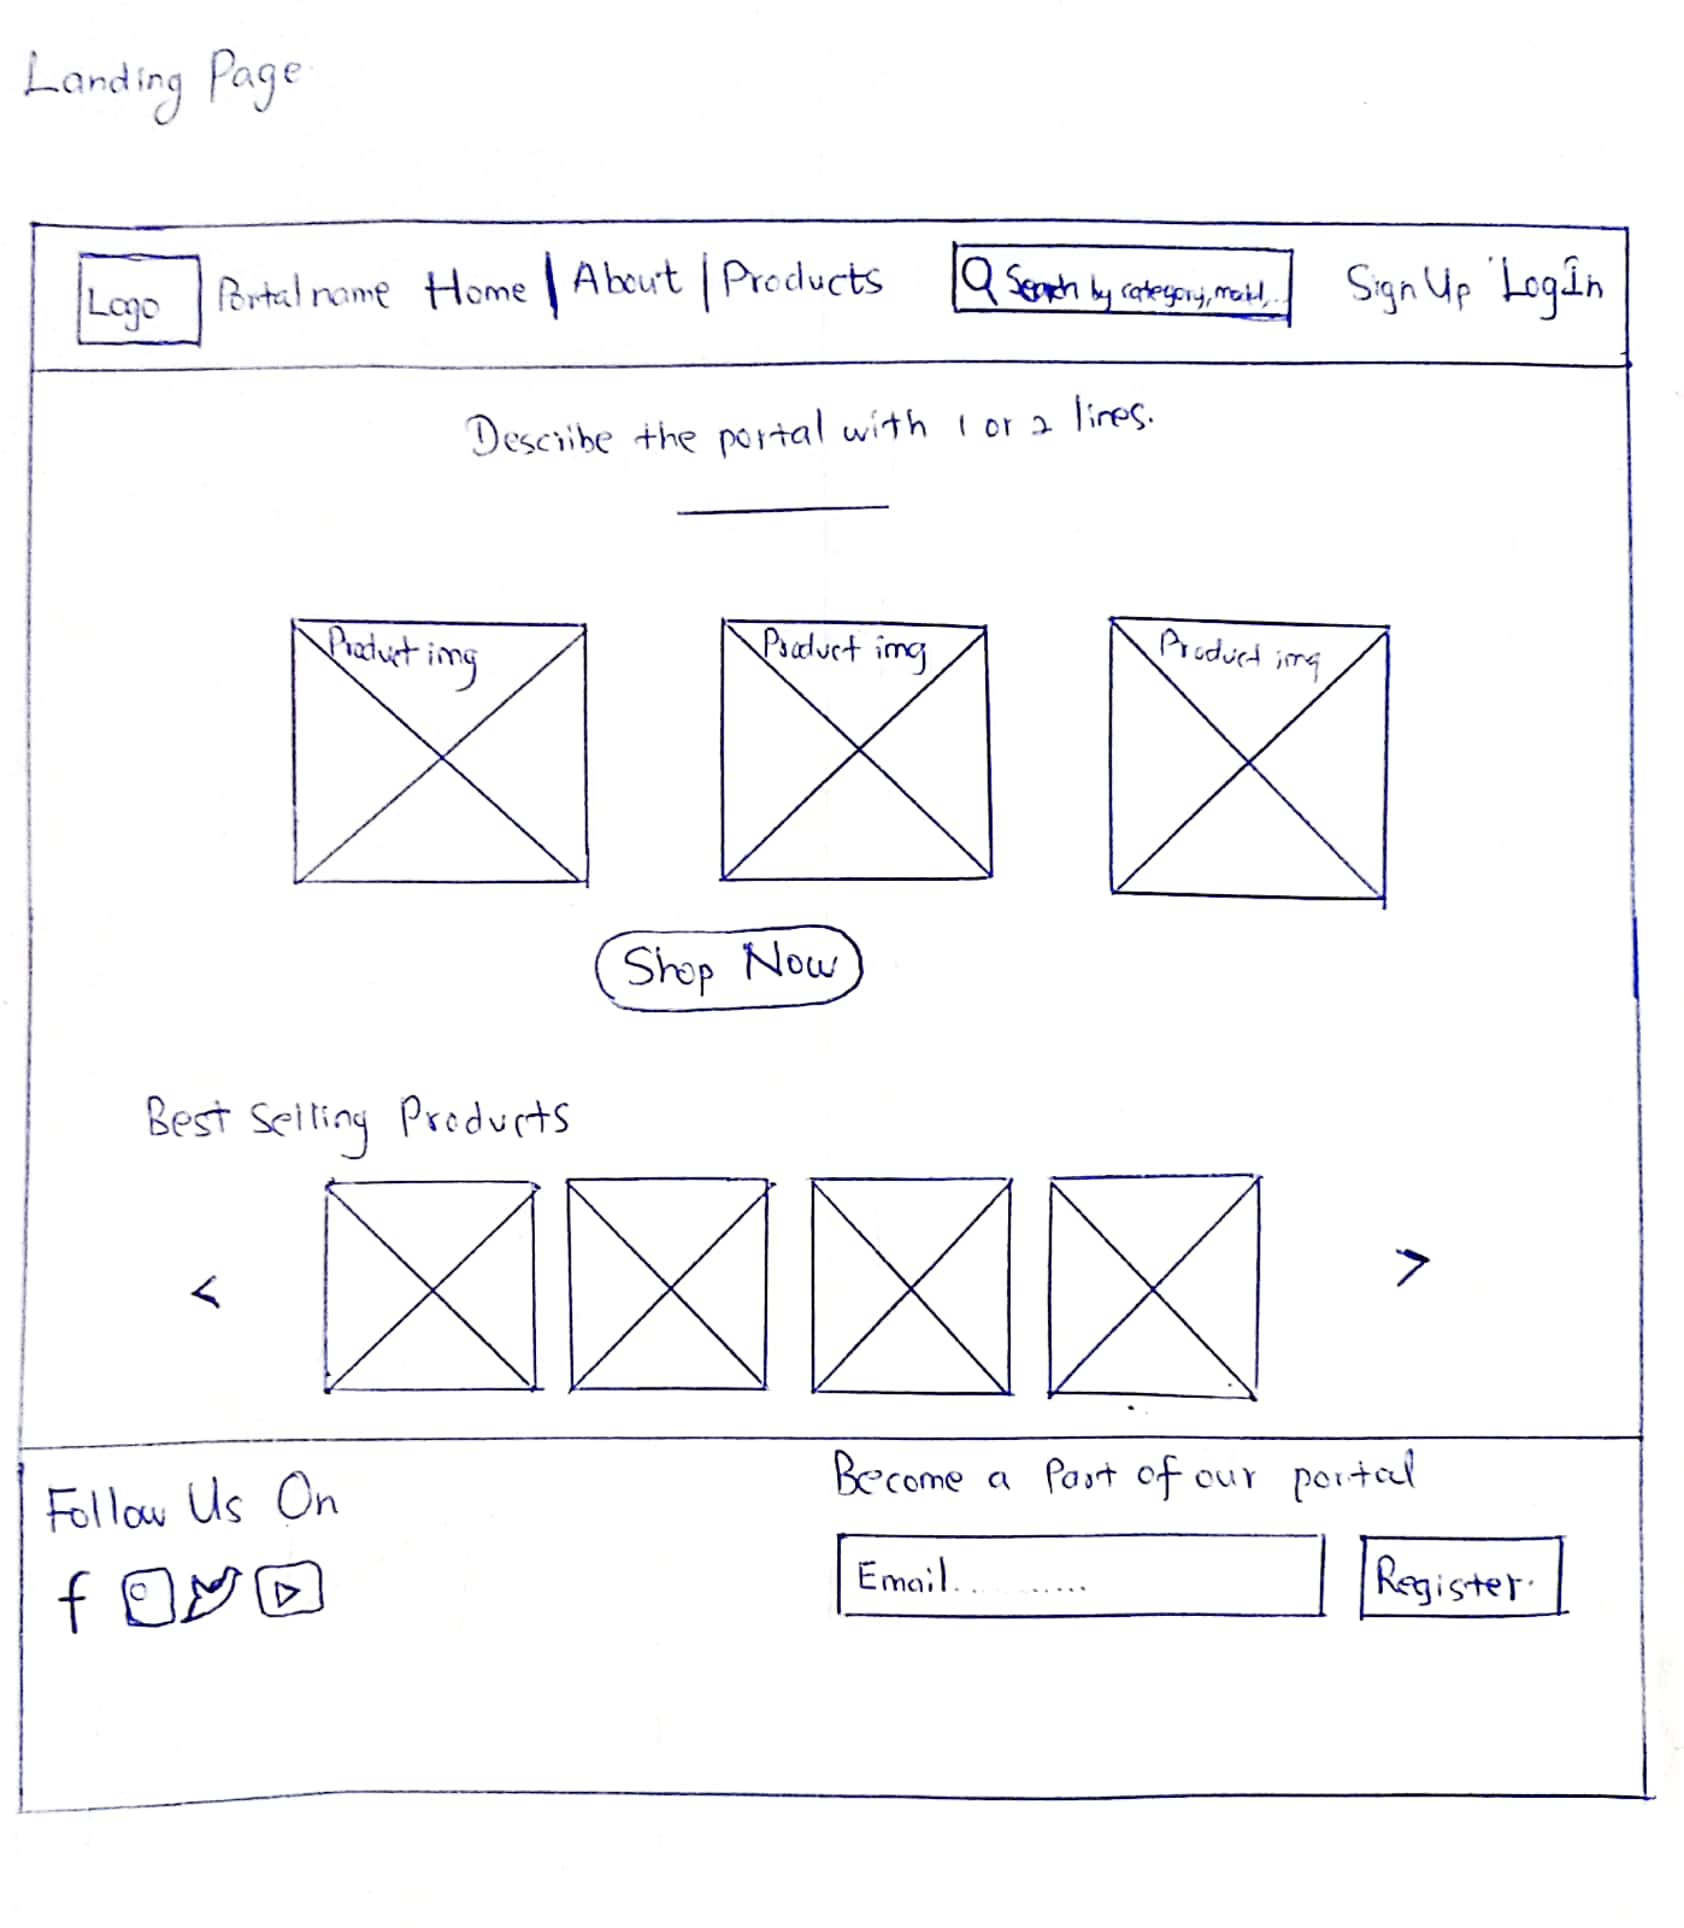 Landing Page
Logo Portal name Home | About | Products Search by category, Sign Up Log In
Describe the portal with 1 or 2 lines.
Product img Product img Product img
Shop Now
Best Selling Products
< >
Follow Us On
Become a Part of our portal
Email........... Register